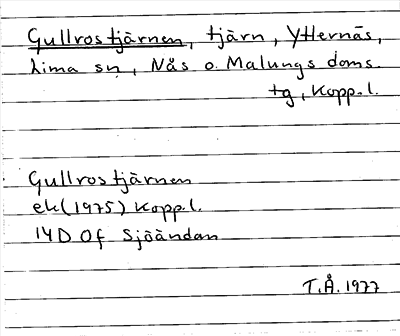 Gullrostjärnen, tjärn, Ytternäs,
Lima sn, Nås o. Malungs doms.
tg, Kopp.l.
Gullrostjärnen
ek(1975) Kopp.l.
14D 0f Sjöändan
T.Å. 1977